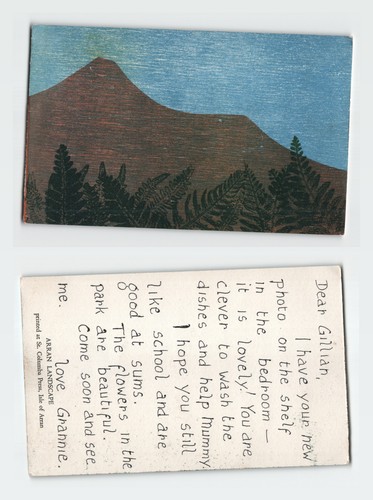 Dear Gillian,
I have your new
photo on the shelf
in the bedroom —
it is lovely! You are
clever to wash the
dishes and help Mummy.
I hope you still
like school and are
good at sums.
The flowers in the
park are beautiful.
Come soon and see
me. love Grannie.
ARRAN LANDSCAPE
printed at St. Columba Press, Isle of Arran